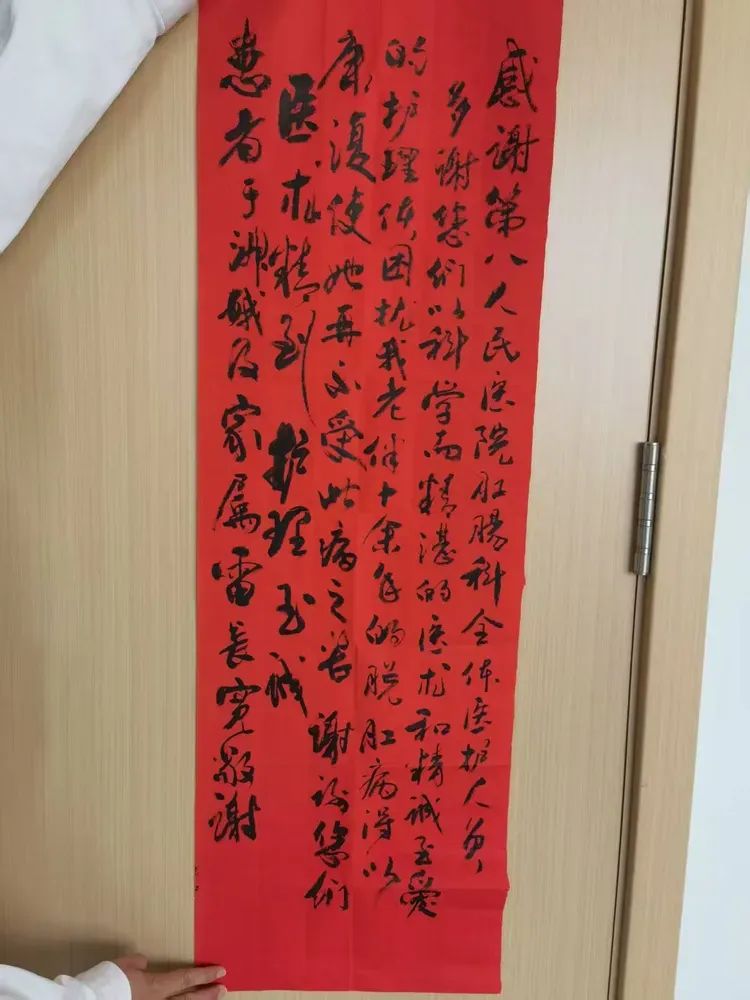 感谢第八人民医院肛肠科全体医护人员
多谢您们以科学而精湛的医术和精诚至爱
的护理使困扰我老伴十余年的脱肛病得以
康復使她再不受此病之苦 谢谢您们
医术精到 护理至诚
患者于淑娥及家属雷长宽敬谢